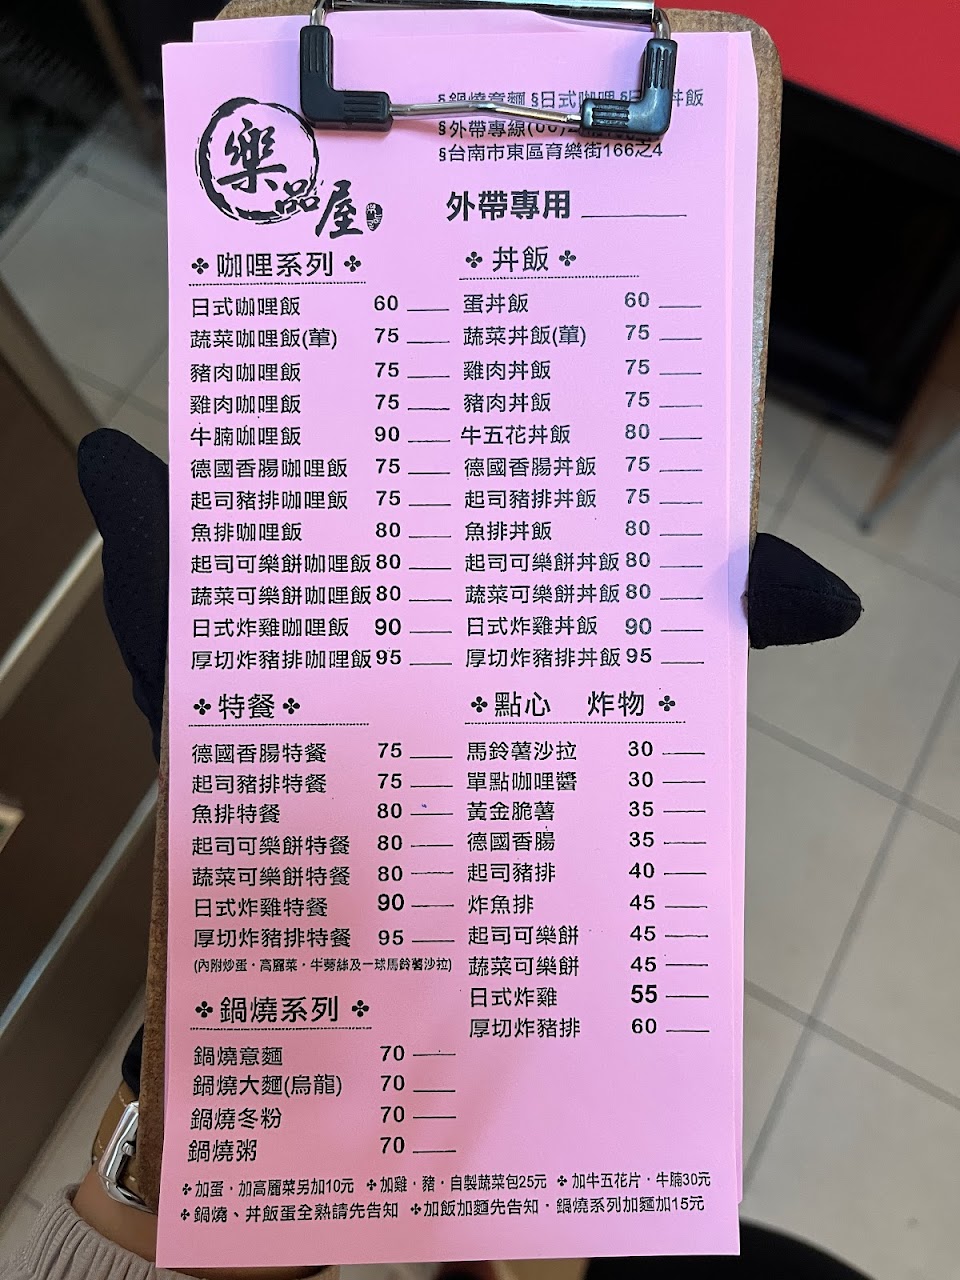 樂品屋
§鍋燒意麵 §日式咖哩 §日式丼飯
§外帶專線(06)2
§台南市東區育樂街166之4
外帶專用
咖哩系列
日式咖哩飯 60
蔬菜咖哩飯(葷) 75
豬肉咖哩飯 75
雞肉咖哩飯 75
牛腩咖哩飯 90
德國香腸咖哩飯 75
起司豬排咖哩飯 75
魚排咖哩飯 80
起司可樂餅咖哩飯 80
蔬菜可樂餅咖哩飯 80
日式炸雞咖哩飯 90
厚切炸豬排咖哩飯 95
丼飯
蛋丼飯 60
蔬菜丼飯(葷) 75
雞肉丼飯 75
豬肉丼飯 75
牛五花丼飯 80
德國香腸丼飯 75
起司豬排丼飯 75
魚排丼飯 80
起司可樂餅丼飯 80
蔬菜可樂餅丼飯 80
日式炸雞丼飯 90
厚切炸豬排丼飯 95
特餐
德國香腸特餐 75
起司豬排特餐 75
魚排特餐 80
起司可樂餅特餐 80
蔬菜可樂餅特餐 80
日式炸雞特餐 90
厚切炸豬排特餐 95
(內附炒蛋・高麗菜・牛蒡絲及一球馬鈴薯沙拉)
點心 炸物
馬鈴薯沙拉 30
單點咖哩醬 30
黃金脆薯 35
德國香腸 35
起司豬排 40
炸魚排 45
起司可樂餅 45
蔬菜可樂餅 45
日式炸雞 55
厚切炸豬排 60
鍋燒系列
鍋燒意麵 70
鍋燒大麵(烏龍) 70
鍋燒冬粉 70
鍋燒粥 70
加蛋・加高麗菜另加10元 加雞・豬・自製蔬菜包25元 加牛五花片・牛腩30元
鍋燒、丼飯蛋全熟請先告知 加飯加麵先告知・鍋燒系列加麵加15元